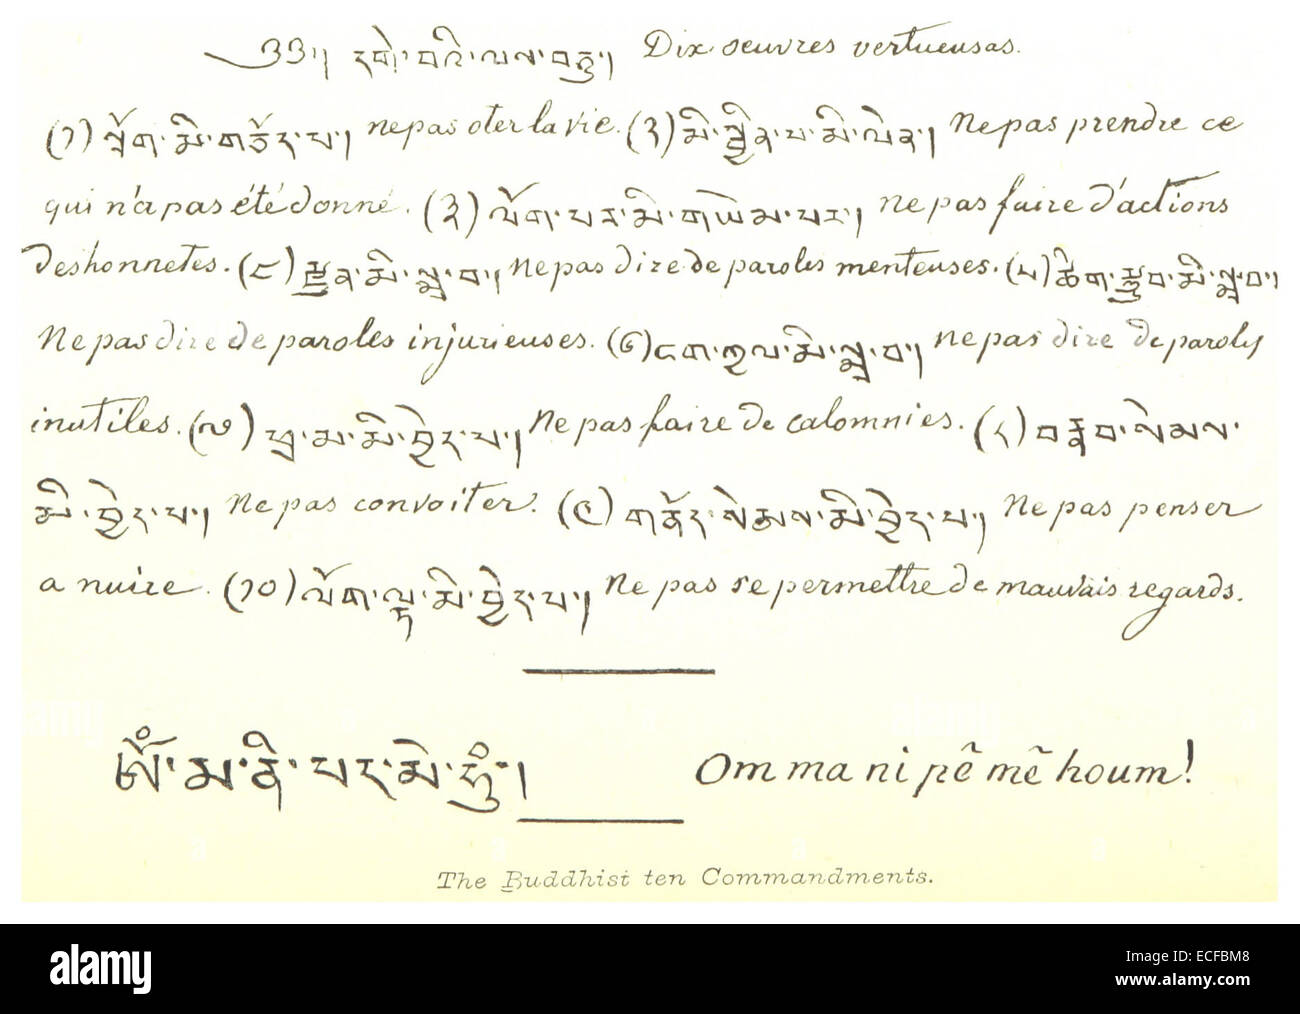 ༄༅།། དགེ་བའི་ལས་བཅུ་། Dix oeuvres vertueusas.
(༡) སྲོག་མི་གཅོད་པ་། ne pas oter la vie. (༢) མི་སྦྱིན་པ་མི་ལེན་། Ne pas prendre ce
qui n'a pas été donné. (༣) ལོག་པར་མི་གཡེམ་པར་། ne pas faire d'actions
deshonnetes. (༤) རྫུན་མི་སྨྲ་བ་། Ne pas dire de paroles menteuses. (༥) ཚིག་རྩུབ་མི་སྨྲ་བ་།
Ne pas dire de paroles injurieuses. (༦) ངག་ཀྱལ་མི་སྨྲ་བ་། ne pas dire de paroles
inutiles. (༧) ཕྲ་མ་མི་བྱེད་པ་། Ne pas faire de calomnies. (༨) བརྣབ་སེམས་
མི་བྱེད་པ་། Ne pas convoiter. (༩) གནོད་སེམས་མི་བྱེད་པ་། Ne pas penser
a nuire. (༡༠) ལོག་ལྟ་མི་བྱེད་པ་། Ne pas se permettre de mauvais regards.
ཨོཾ་མ་ནི་པད་མེ་ཧཱུྃ་། Om ma ni pẽ mẽ houm!
The Buddhist ten Commandments.
alamy
alamy
alamy
Image ID: ECFBM8
www.alamy.com